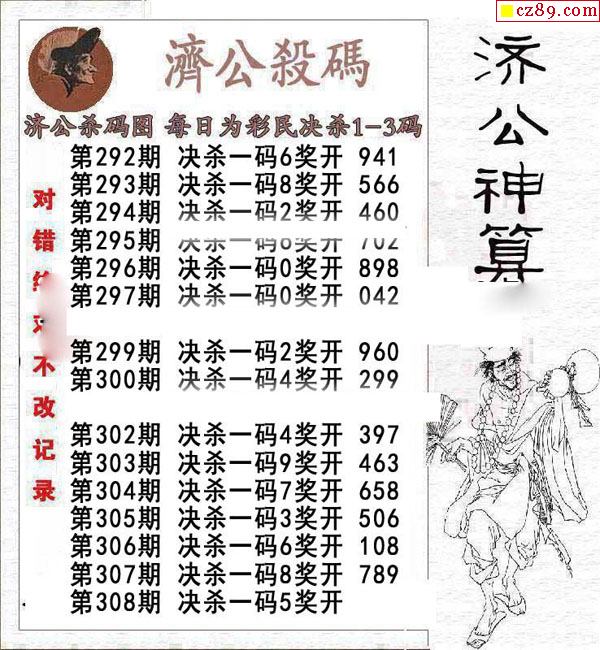 cz89.com
濟公殺碼
济公杀码图 每日为彩民决杀1-3码
第292期 决杀一码6奖开 941
第293期 决杀一码8奖开 566
第294期 决杀一码2奖开 460
第295期 决杀一码 奖开 702
第296期 决杀一码0奖开 898
第297期 决杀一码0奖开 042
第299期 决杀一码2奖开 960
第300期 决杀一码4奖开 299
第302期 决杀一码4奖开 397
第303期 决杀一码9奖开 463
第304期 决杀一码7奖开 658
第305期 决杀一码3奖开 506
第306期 决杀一码6奖开 108
第307期 决杀一码8奖开 789
第308期 决杀一码5奖开
对错 不改记录
济公神算